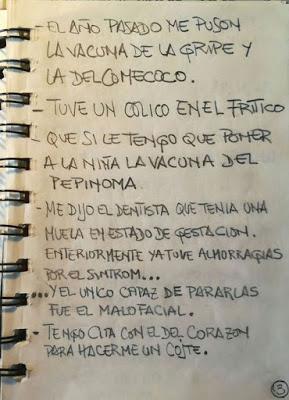 - EL AÑO PASADO ME PUSON
LA VACUNA DE LA GRIPE Y
LA DEL COMECOCO.
- TUVE UN COLICO EN EL FRITICO
- QUE SI LE TENGO QUE PONER
A LA NIÑA LA VACUNA DEL
PEPINOMA.
- ME DIJO EL DENTISTA QUE TENIA UNA
MUELA EN ESTADO DE GESTACION.
ENTERIORMENTE YA TUVE ALMORRAGIAS
POR EL SINTROM...
...Y EL UNICO CAPAZ DE PARARLAS
FUE EL MALOFACIAL.
- TENGO CITA CON EL DEL CORAZON
PARA HACERME UN COJTE.
3